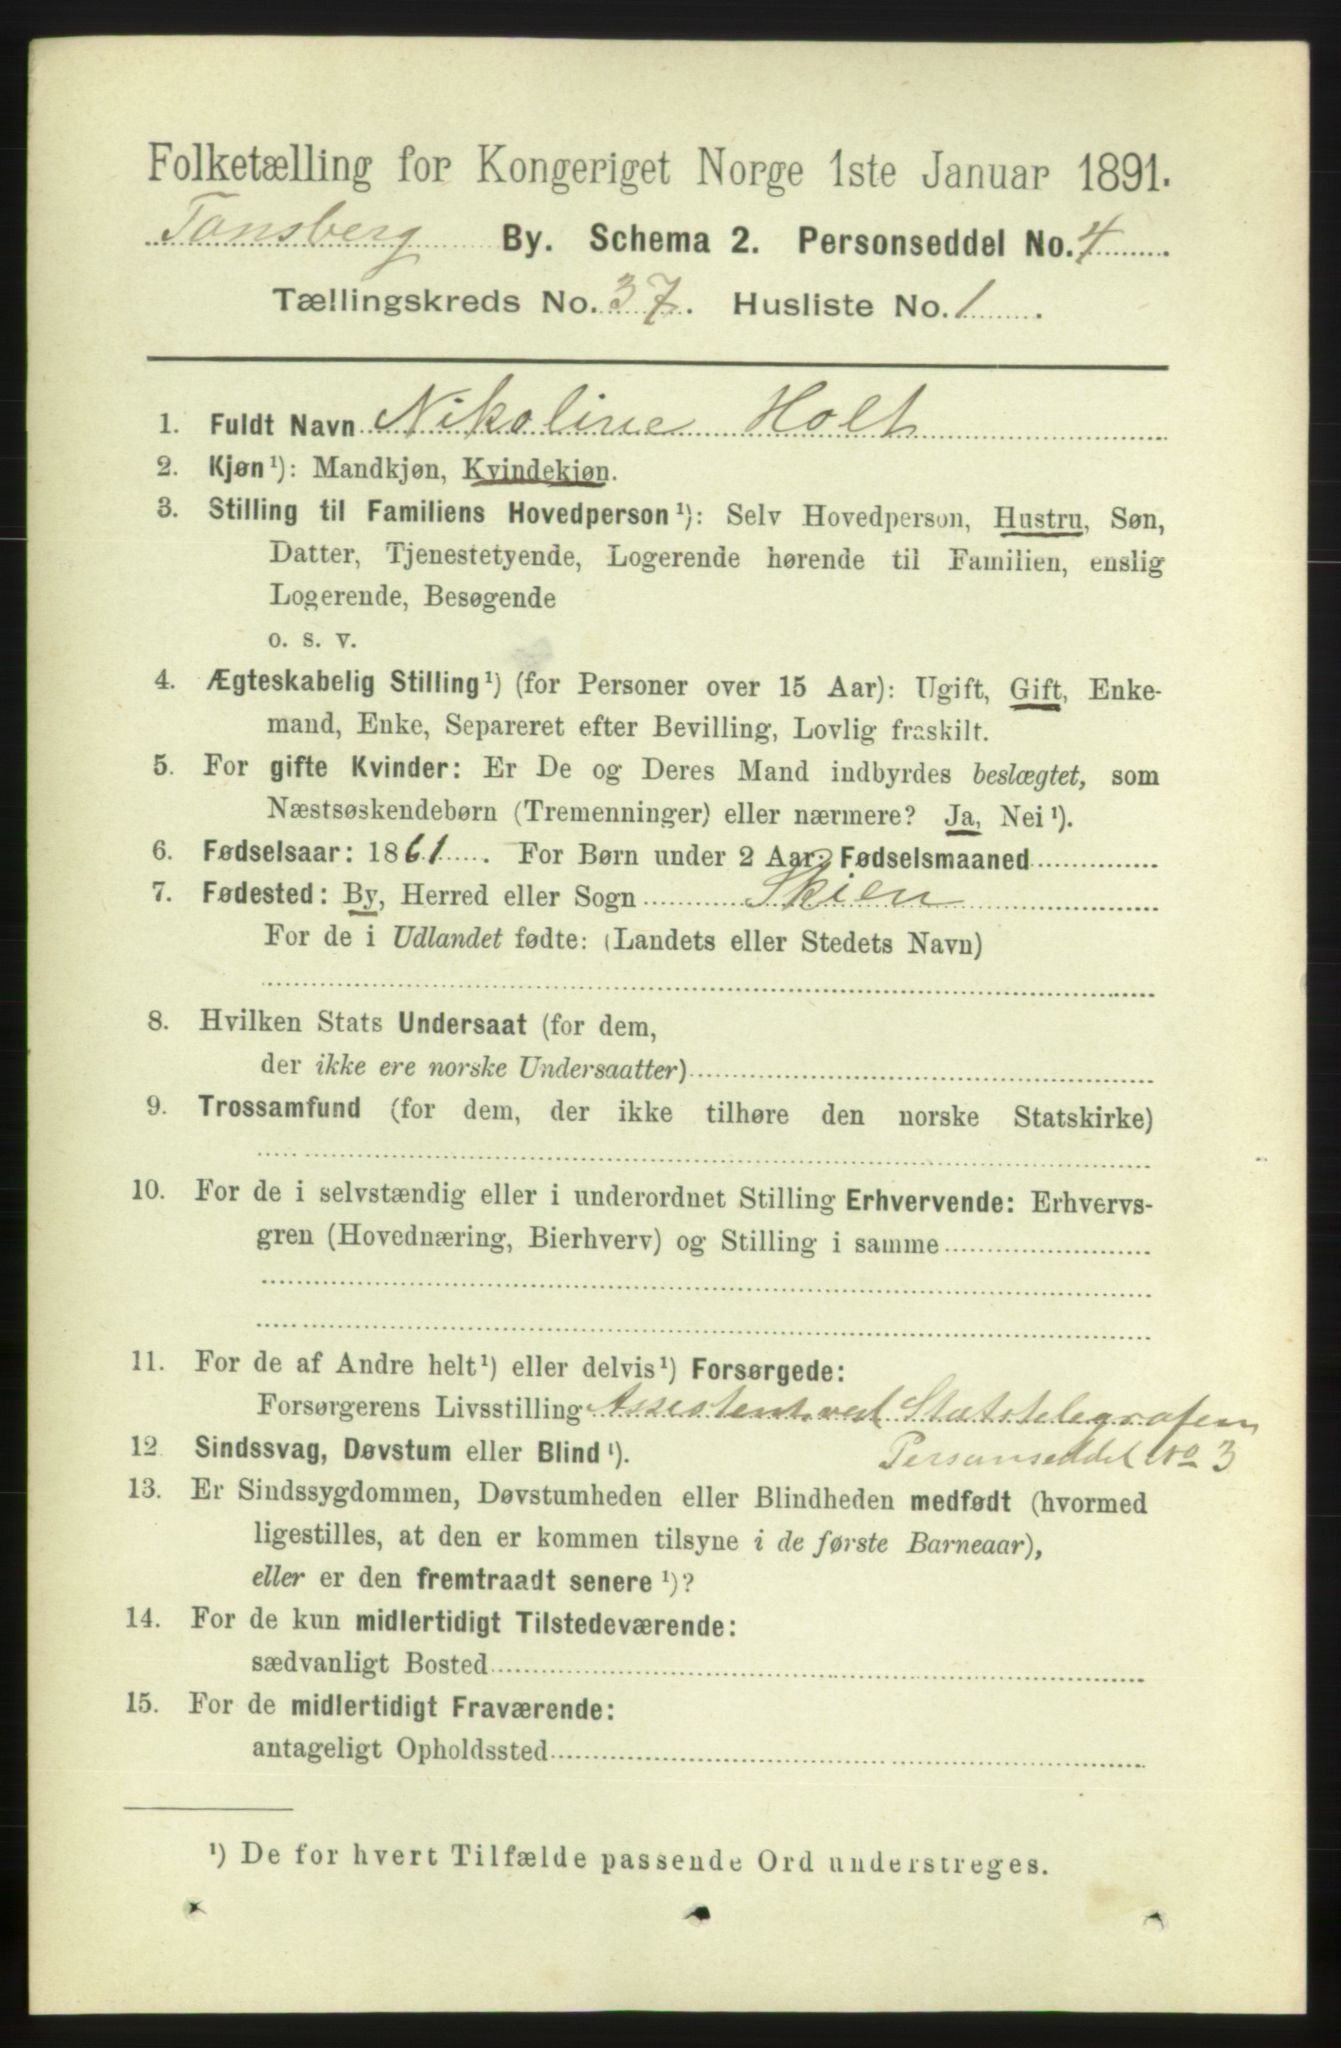 Folketælling for Kongeriget Norge 1ste Januar 1891.
Tønsberg By. Schema 2. Personseddel No. 4
Tællingskreds No. 37. Husliste No. 1.
1. Fuldt Navn Nikoline Holt
2. Kjøn ¹): Mandkjøn, Kvindekjøn.
3. Stilling til Familiens Hovedperson ¹): Selv Hovedperson, Hustru, Søn,
Datter, Tjenestetyende, Logerende hørende til Familien, enslig
Logerende, Besøgende
o. s. v.
4. Ægteskabelig Stilling ¹) (for Personer over 15 Aar): Ugift, Gift, Enke-
mand, Enke, Separeret efter Bevilling, Lovlig fraskilt.
5. For gifte Kvinder: Er De og Deres Mand indbyrdes beslægtet, som
Næstsøskendebørn (Tremenninger) eller nærmere? Ja, Nei ¹).
6. Fødselsaar: 1861. For Børn under 2 Aar: Fødselsmaaned
7. Fødested: By, Herred eller Sogn Skien
For de i Udlandet fødte: (Landets eller Stedets Navn)
8. Hvilken Stats Undersaat (for dem,
der ikke ere norske Undersaatter)
9. Trossamfund (for dem, der ikke tilhøre den norske Statskirke)
10. For de i selvstændig eller i underordnet Stilling Erhvervende: Erhvervs-
gren (Hovednæring, Bierhverv) og Stilling i samme
11. For de af Andre helt ¹) eller delvis ¹) Forsørgede:
Forsørgerens Livsstilling Assistent ved Statstelegrafen
12 Sindssvag, Døvstum eller Blind ¹). Personseddel No 3
13. Er Sindssygdommen, Døvstumheden eller Blindheden medfødt (hvormed
ligestilles, at den er kommen tilsyne i de første Barneaar),
eller er den fremtraadt senere ¹)?
14. For de kun midlertidigt Tilstedeværende:
sædvanligt Bosted
15. For de midlertidigt Fraværende:
antageligt Opholdssted
¹) De for hvert Tilfælde passende Ord understreges.